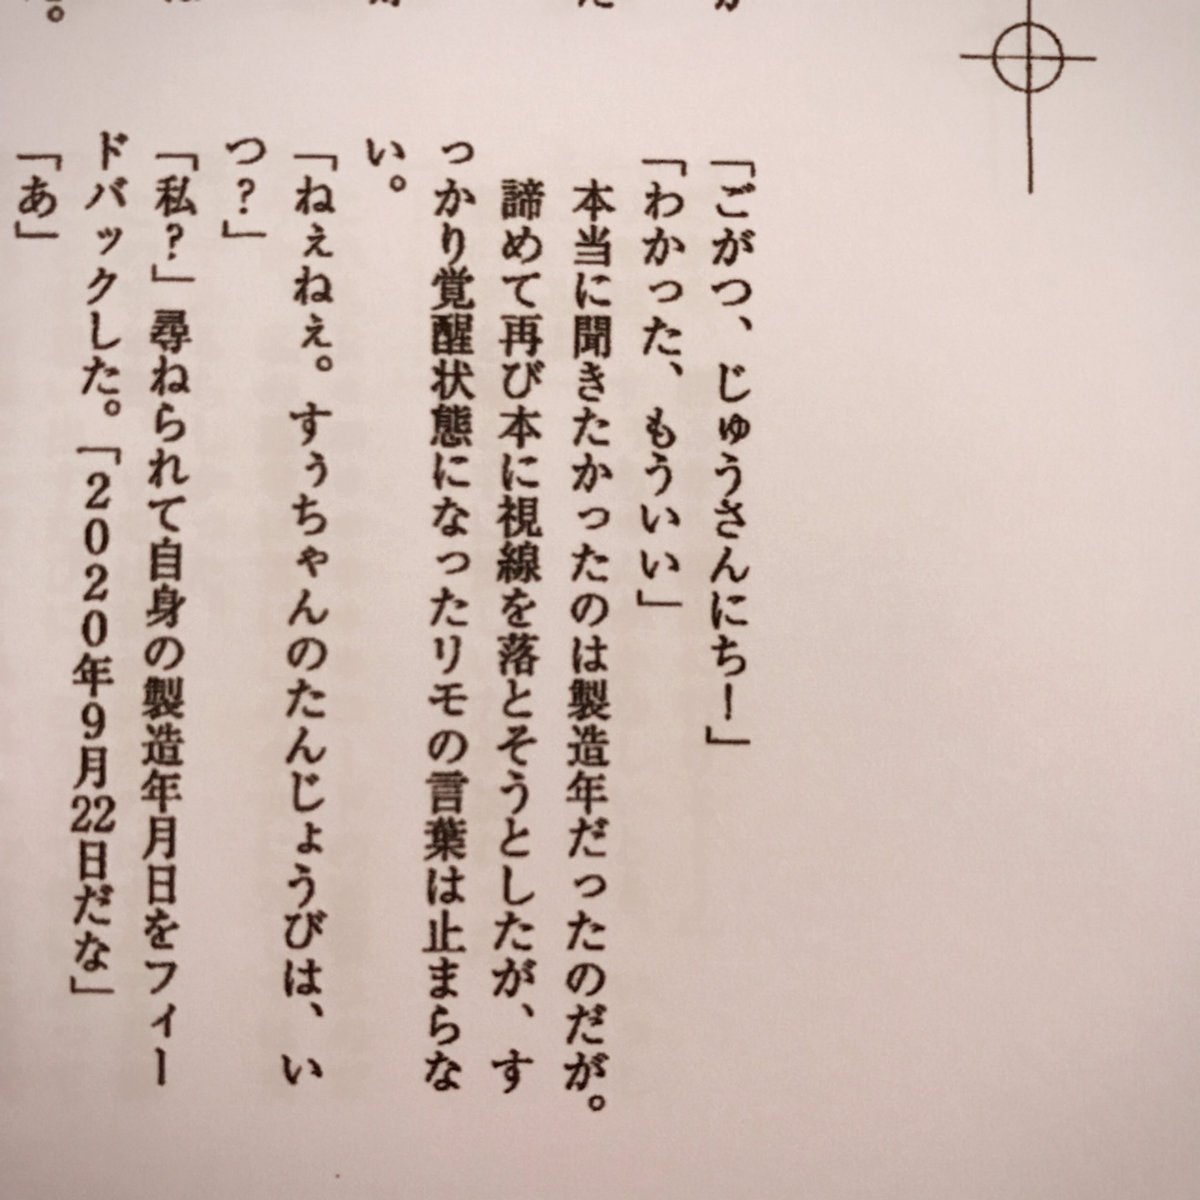 「ごがつ、じゅうさんにち！」
「わかった、もういい」
本当に聞きたかったのは製造年だったのだが。
諦めて再び本に視線を落とそうとしたが、す
っかり覚醒状態になったリモの言葉は止まらな
い。
「ねぇねぇ。すぅちゃんのたんじょうびは、い
つ？」
「私？」尋ねられて自身の製造年月日をフィー
ドバックした。「２０２０年９月22日だな」
「あ」